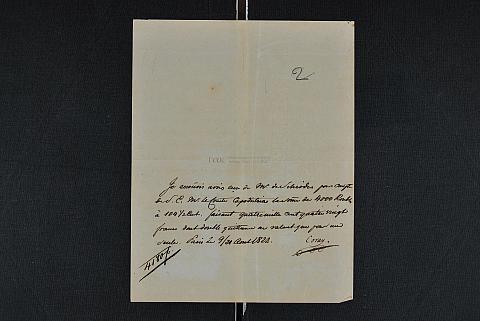 2
Je soussigné avoir reçu de Mr de Schröder pour compte
de S. E. Mr le Comte Capodistrias la somme de 4000 Roubl.
à 104 ½ cent. faisant quatre mille cent quatre vingt
francs dont double quittance ne valant que pour une
seule. Paris le 9/21 Aout 1822. Coray
4180 f.